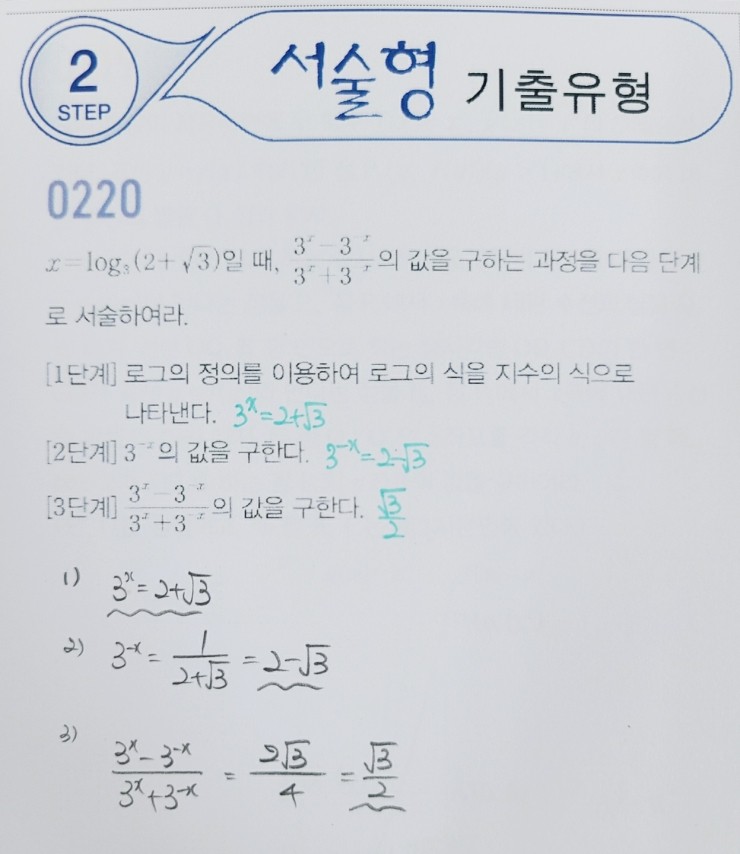 2
STEP
서술형 기출유형
0220
x=log₃(2+√3)일 때, (3ˣ-3⁻ˣ)/(3ˣ+3⁻ˣ)의 값을 구하는 과정을 다음 단계
로 서술하여라.
[1단계] 로그의 정의를 이용하여 로그의 식을 지수의 식으로
나타낸다. 3ˣ=2+√3
[2단계] 3⁻ˣ의 값을 구한다. 3⁻ˣ=2-√3
[3단계] (3ˣ-3⁻ˣ)/(3ˣ+3⁻ˣ)의 값을 구한다. √3/2
1) 3ˣ=2+√3
2) 3⁻ˣ = 1/(2+√3) = 2-√3
3) (3ˣ-3⁻ˣ)/(3ˣ+3⁻ˣ) = 2√3/4 = √3/2